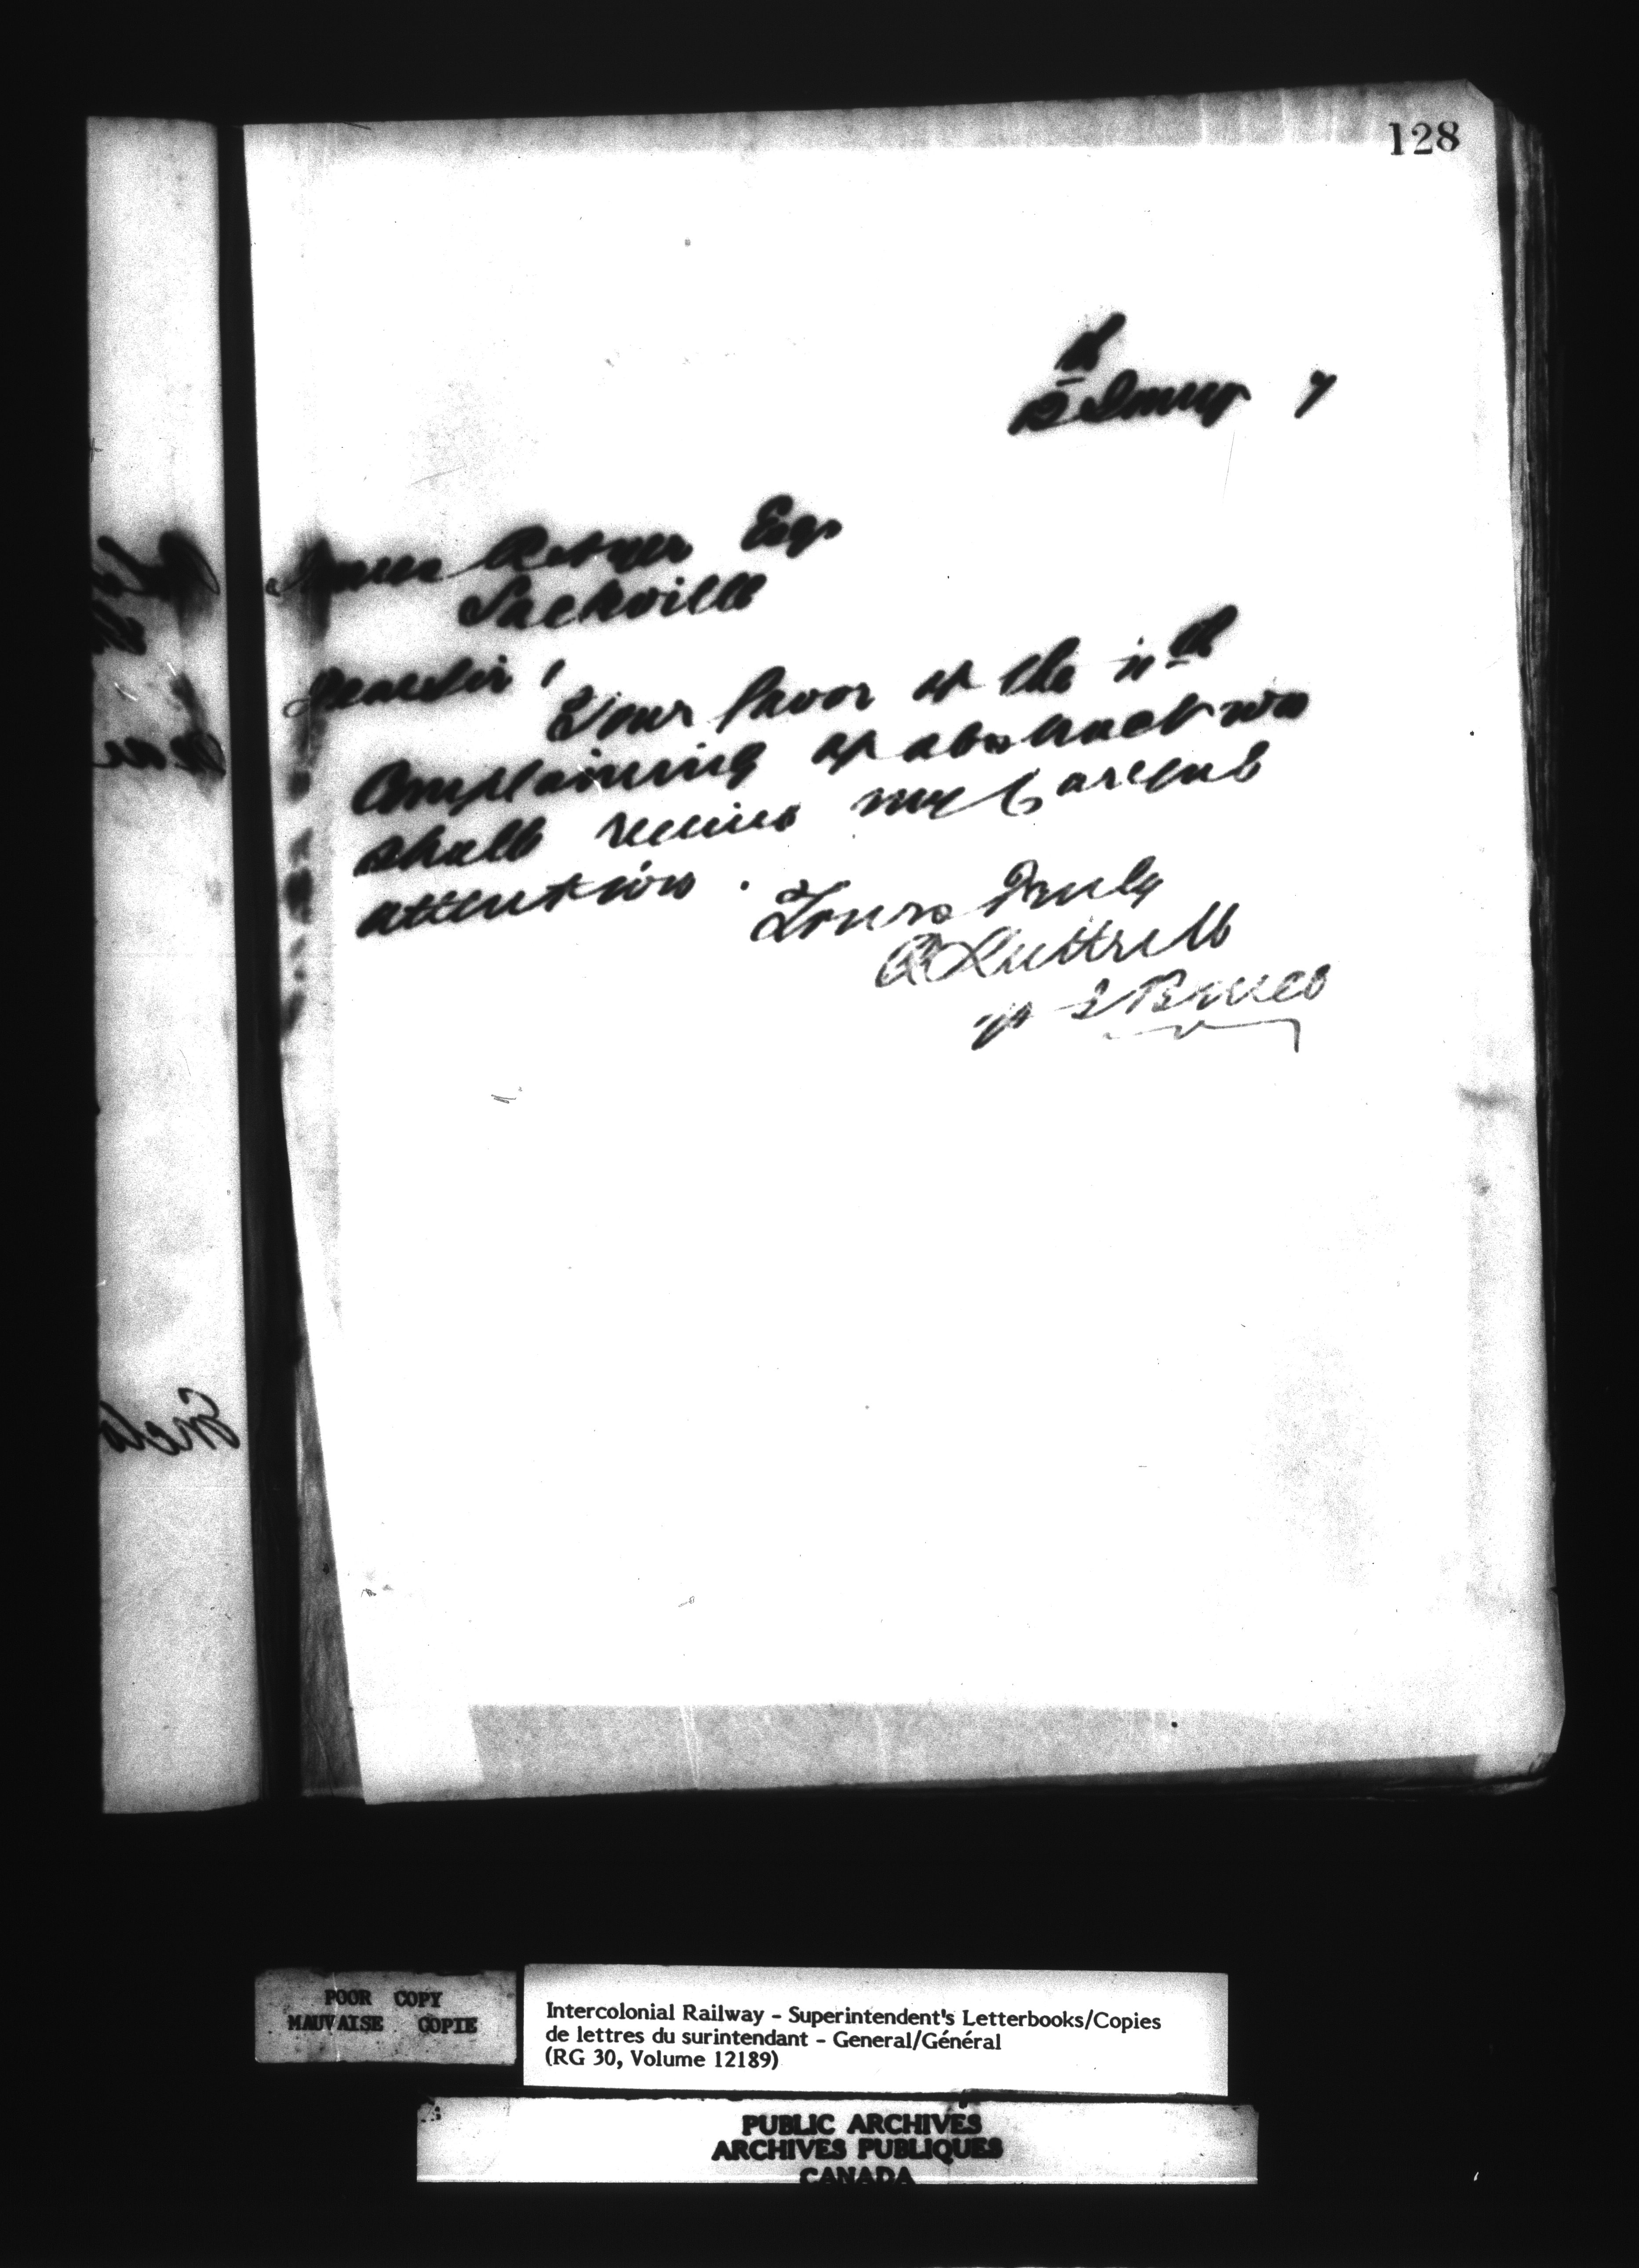 128
12th Jany 7
James Esqr
Sackville
Dear Sir!
Your favor of the 11th
Complaining of abstract was
shall receive my Careful
attention.
Yours Truly
A Luttrell
p
POOR COPY
MAUVAISE COPIE
Intercolonial Railway - Superintendent's Letterbooks/Copies
de lettres du surintendant - General/Général
(RG 30, Volume 12189)
PUBLIC ARCHIVES
ARCHIVES PUBLIQUES
CANADA